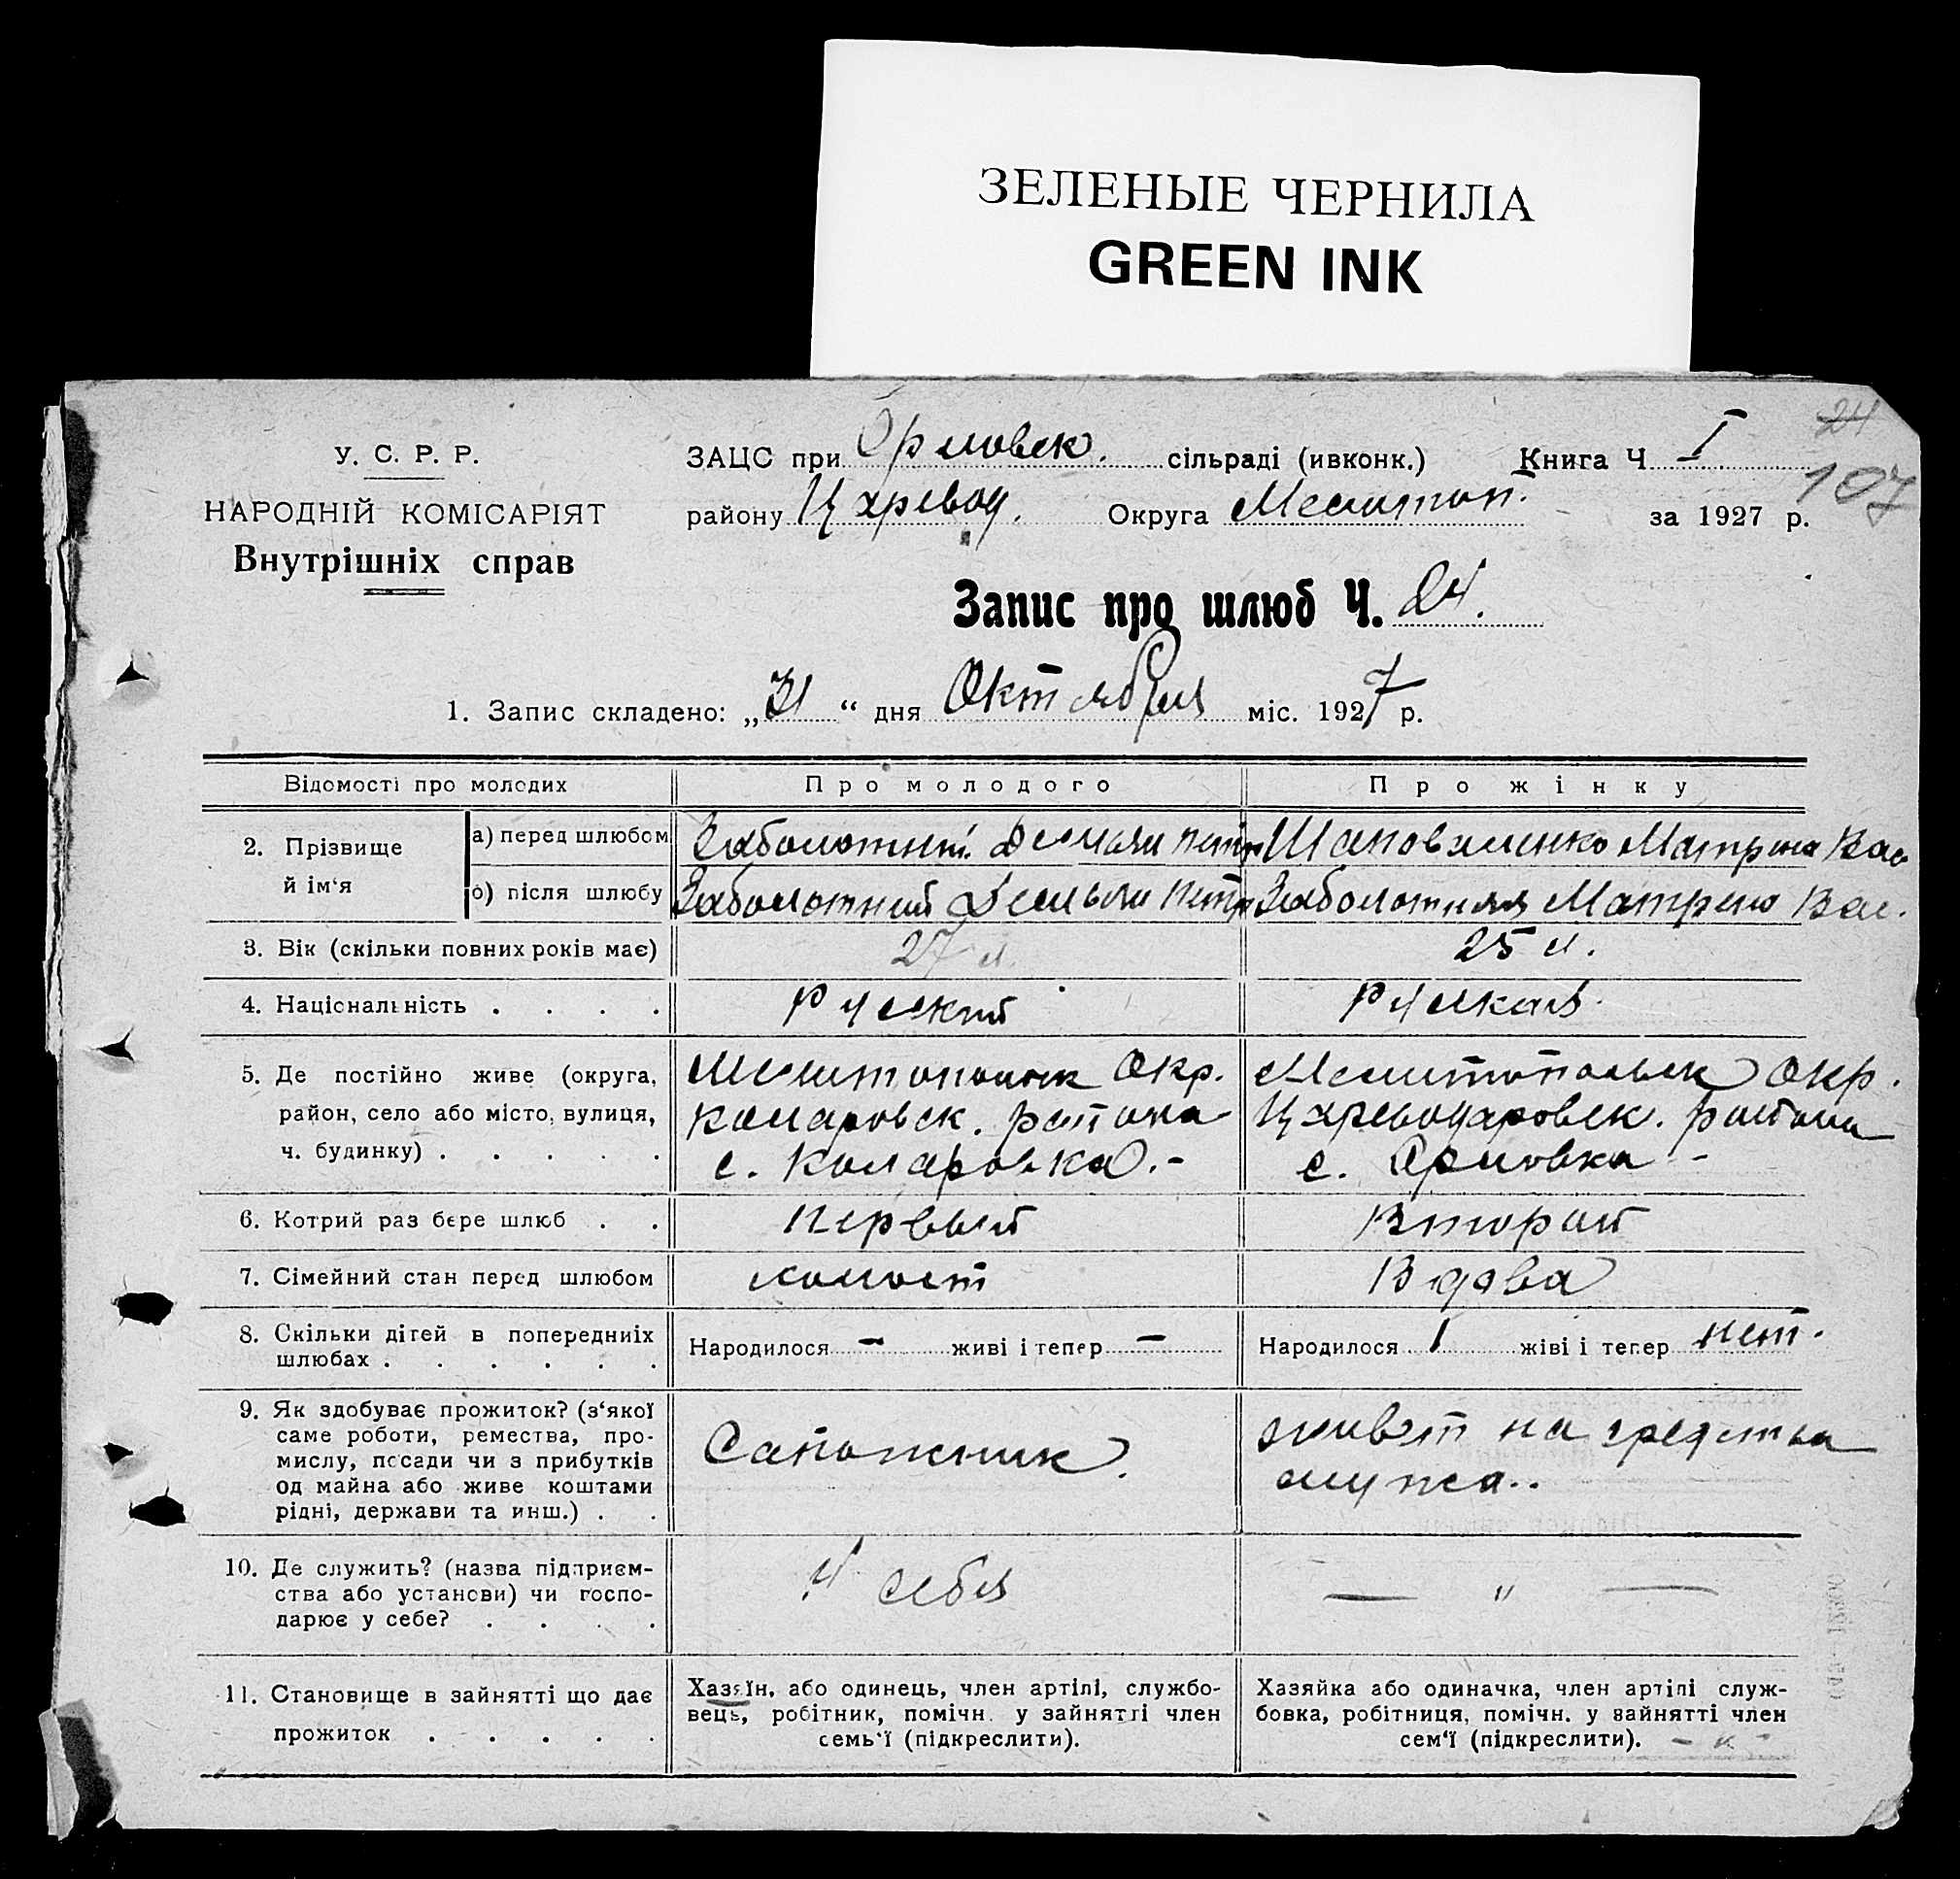 ЗЕЛЕНЫЕ ЧЕРНИЛА
GREEN INK
24
У. С. Р. Р.
НАРОДНІЙ КОМІСАРІЯТ
Внутрішніх справ
ЗАЦС при Орловск. сільраді (ивконк.) Книга Ч I
107
району Царевод. Округа Мелитоп. за 1927 р.
Запис про шлюб Ч. 24.
1. Запис складено: „31“ дня Октября міс. 1927 р.
Відомості про молодих Про молодого Про жінку
2. Прізвище й ім‘я
а) перед шлюбом Заболотный Демьян Петр Шаповаленко Матрена Вас
б) після шлюбу Заболотний Демьян Петр Заболотная Матрена Вас.
3. Вік (скільки повних років має) 27 л. 25 л.
4. Національність . . . . Руский Руская
5. Де постійно живе (округа, Мелитопольск Окр. Мелитопольск Окр.
район, село або місто, вулиця, Коларовск. района Цареводаровск. района
ч. будинку) . . . . . с. Коларовка.- с. Орловка -
6. Котрий раз бере шлюб . . Первый Второй
7. Сімейний стан перед шлюбом холост Вдова
8. Скільки дітей в попередниіх
шлюбах . . . . . . Народилося - живі і тепер - Народилося 1 жіві і тепер нет.
9. Як здобуває прожиток? (з‘якої
саме роботи, ремества, про-
мислу, посади чи з прибутків
од майна або живе коштами
рідні, держави та инш.) . .
Сапожник.
живет на средства
мужа..
10. Де служить? (назва підприєм-
ства або установи) чи госпо-
дарює у себе? . . . .
У себя
— " —
11. Становище в зайнятті що дає
прожиток . . . . .
Хазяїн, або одинець, член артілі, службо-
вець, робітник, помічн. у зайнятті член
семь‘ї (підкреслити).
Хазяйка або одиначка, член артілі служ-
бовка, робітниця, помічн. у зайнятті член
сем‘ї (підкреслити).